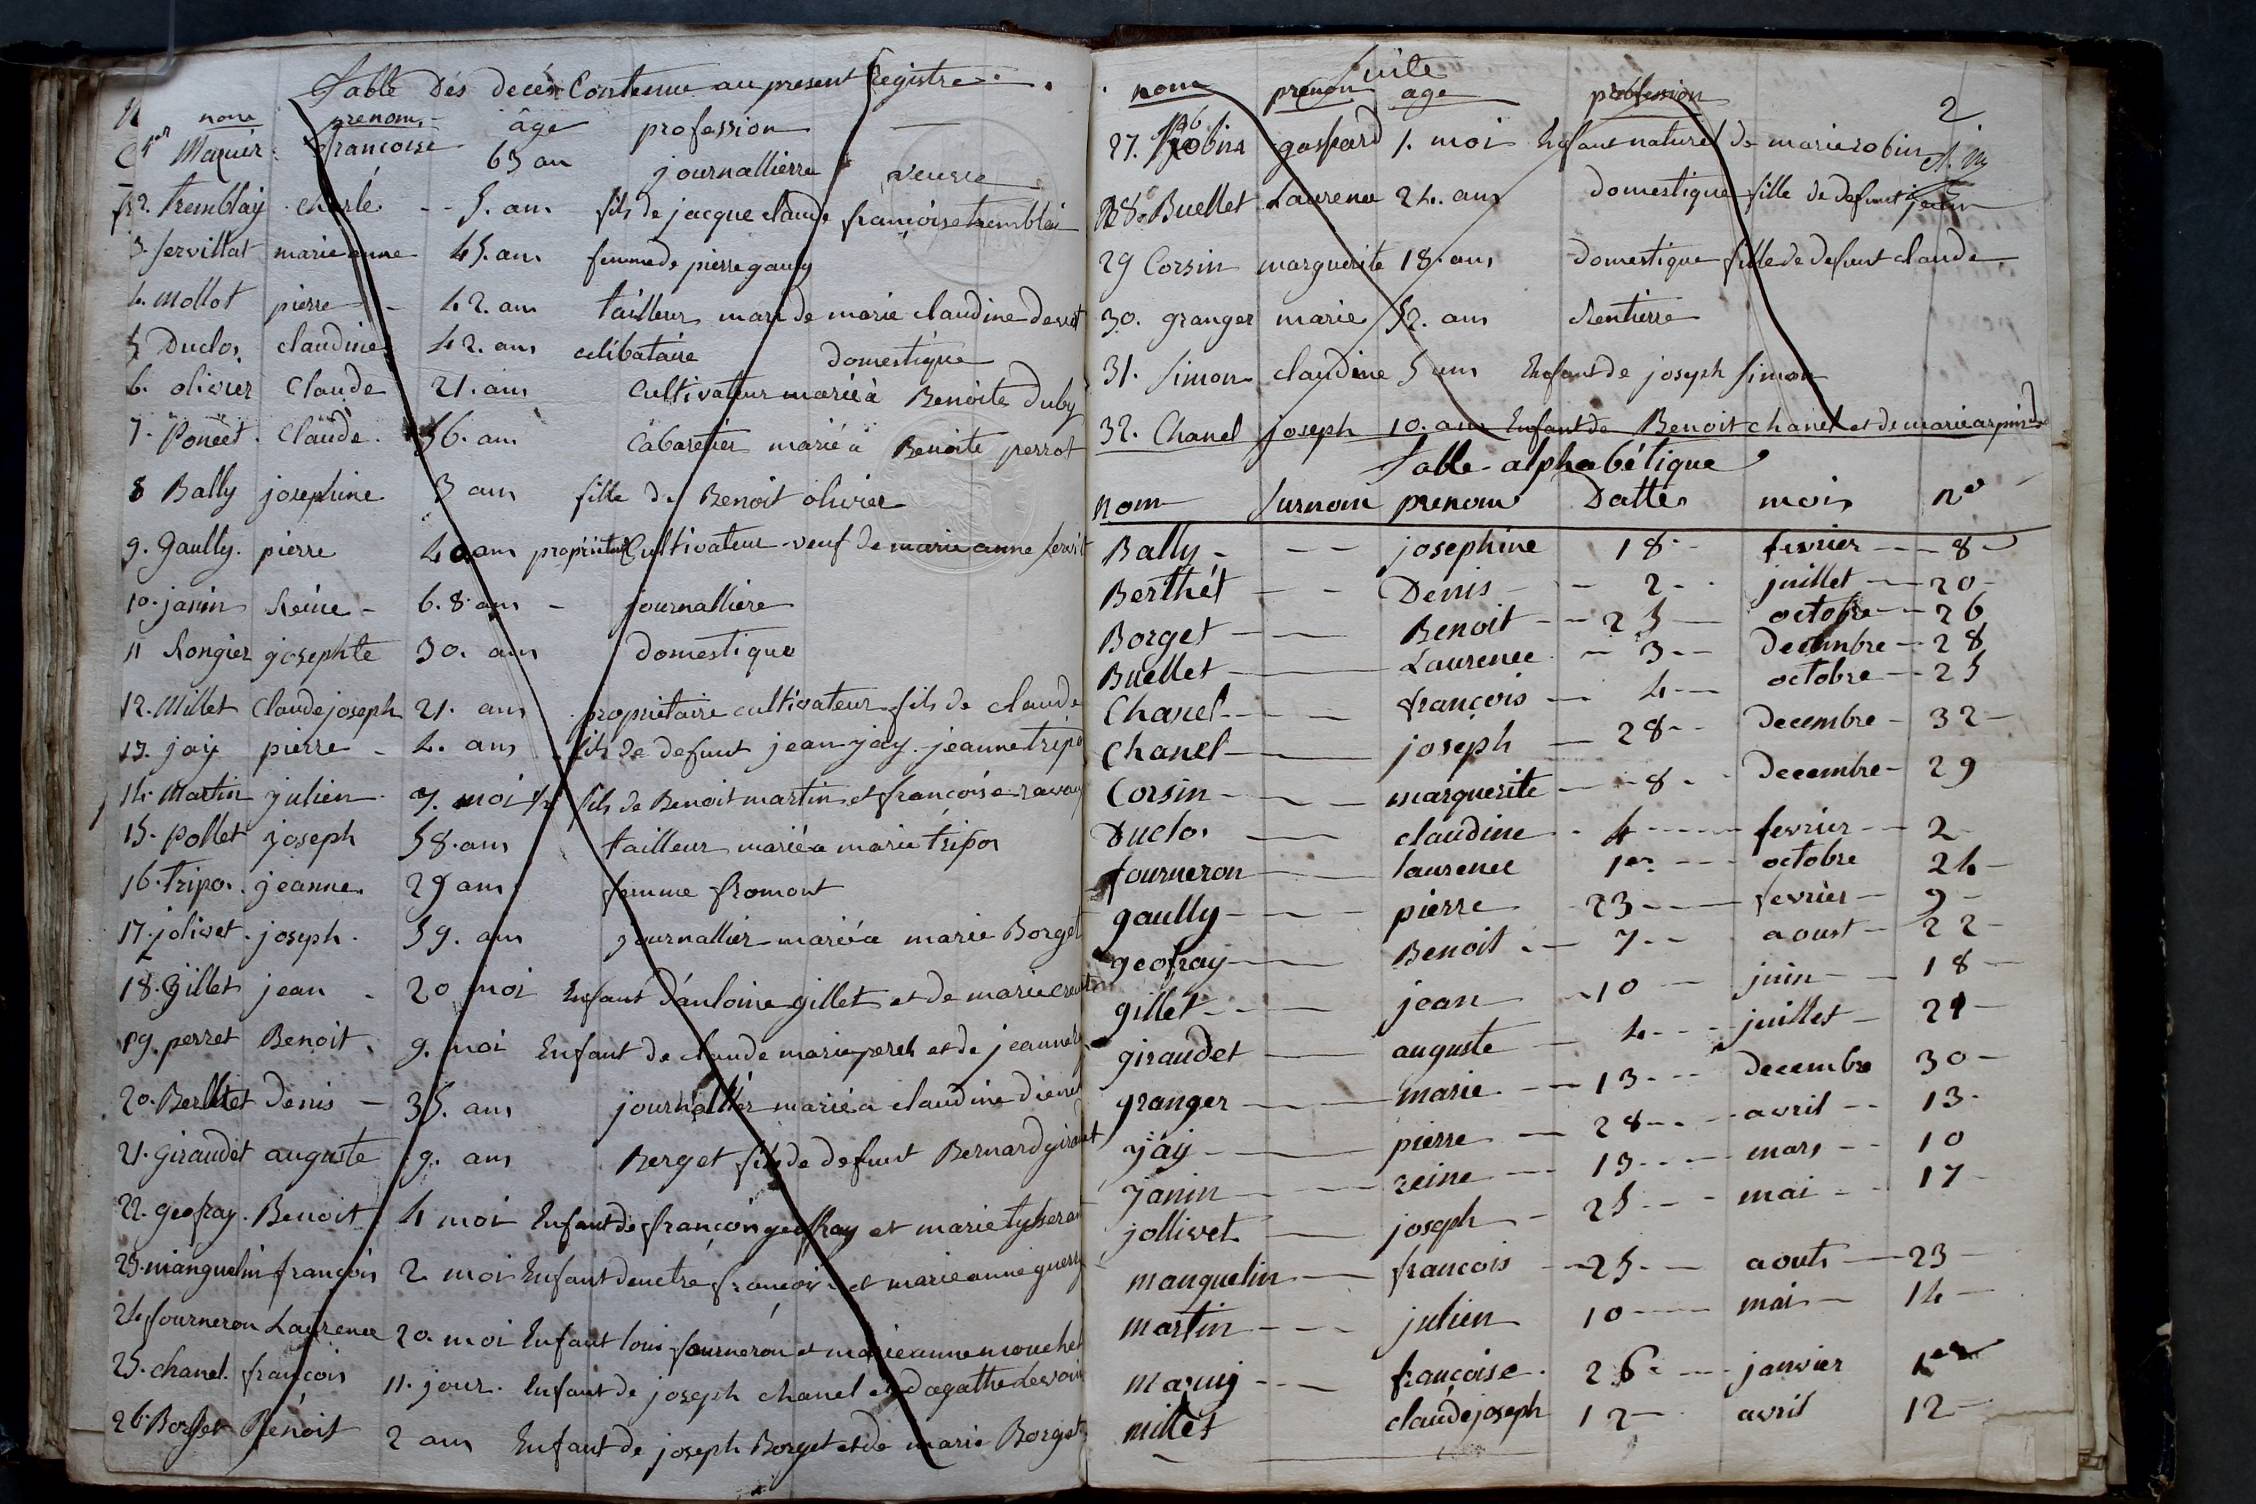 Table des decés Contenue au present Registre
nom prenom âge profession
1er Maquir françoise 63 an journallierre veuve
2. Tremblay charle 5. ans fils de jacque claude françoise tremblai
3. Servillat marie anne 45. ans femme de pierre gauly
4. Mollot pierre 42. ans tailleur mari de marie claudine
5 Duclos claudine 42. ans celibataire domestique
6. olivier Claude 21. ans Cultivateur marié à Benoite Duby
7. Poncet Claude 56. ans Cabaretier marié a Benoite perrot
8 Bally josephine 3 ans fille de Benoit olivier
9. Gaully. pierre 40 ans proprietaire Cultivateur veuf de marie anne
10. janin Reine 68 ans journalliere
11 Rongier josephte 30. ans domestique
12. Millet Claude joseph 21. ans proprietaire cultivateur fils de claude
13. jay pierre 4. ans fils de defunt jean jay. jeanne tripo
14. Martin julien 7. moi ½ fils de Benoit martin et françoise ravay
15. Pollet joseph 58. ans tailleur marié a marie tripos
16. tripos. jeanne. 29 ans femme fromont
17. jolivet. joseph. 59. ans journallier marié a marie Borget
18. Gillet jean 20 moi Enfant d'antoine gillet et de marie
19. perret Benoit. 9. moi Enfant de claude marie peret et de jeanne
20. Berthet Denis 35. ans journallier marié a claudine
21. Giraudet auguste 9. ans Berget fils de defunt Bernard
22. geofray. Benoit 4 moi Enfant de françois geoffray et marie
23. manguelin françois 2 moi Enfant françois et marie anne
24. fourneron Laurence 20. moi Enfant loui fourneron et marie anne mouchet
25. chanel. françois 11. jour. Enfant de joseph chanel et d'agathe
26. Borget Benoit 2 ans Enfant de joseph Borget et de marie Borget
Suite
nom prenom age profession
2
27. Robin gaspard 1. moi Enfant naturel de marie robin
28. Buellet Laurence 24. ans domestique fille de defunt jean
29 Corsin marguerite 18. ans domestique fille de defunt claude
30. granger marie 52. ans Rentierre
31. Simon claudine 5 ans Enfant de joseph Simon
32. Chanel joseph 10. ans Enfant de Benoit chanel et de marie
Table alphabétique
nom Surnom prenom Datte mois no
Bally josephine 18 fevrier 8
Berthet Denis 2 juillet 20
Borget Benoit 25 octobre 26
Buellet Laurence 3 decembre 28
Chanel françois 4 octobre 25
Chanel joseph 28 decembre 32
Corsin marguerite 8 decembre 29
Duclos claudine 4 fevrier 2
fourneron laurence 1er octobre 24
gaully pierre 23 fevrier 9
geofray Benoit 7 aoust 22
gillet jean 10 juin 18
giraudet auguste 4 juillet 21
granger marie 13 decembre 30
jay pierre 28 avril 13
janin reine 13 mars 10
jollivet joseph 25 mai 17
manquelin francois 25 aout 23
martin julien 10 mai 14
maquij françoise 26 janvier 1er
millet claude joseph 12 avril 12